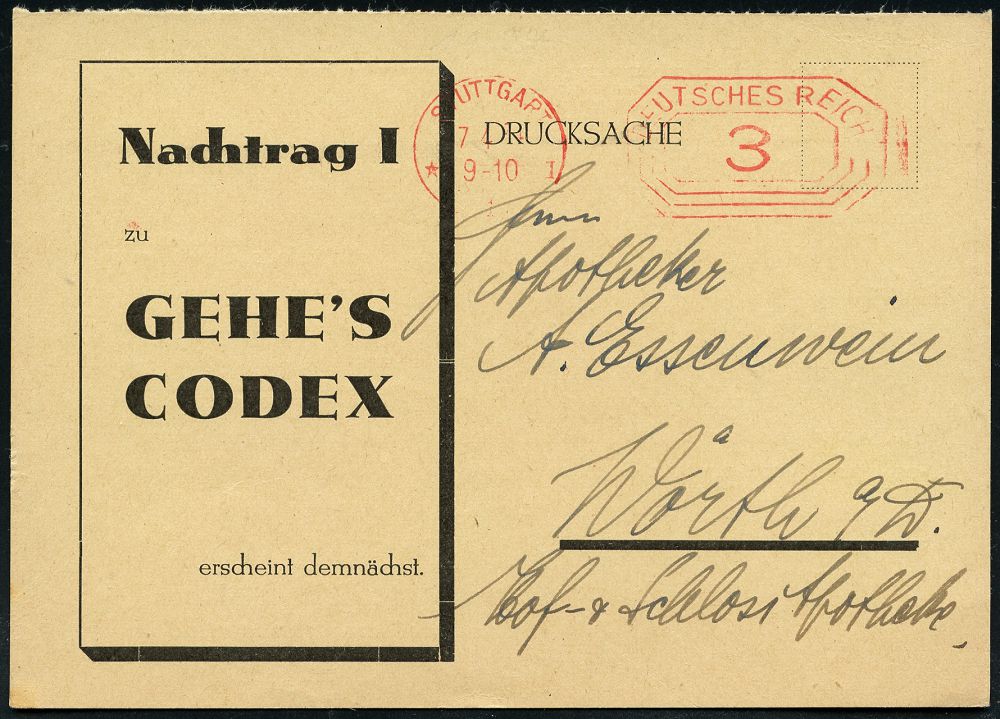 Nachtrag I
zu
GEHE'S
CODEX
erscheint demnächst.
STUTTGART
7 4
9-10 I
1
DRUCKSACHE
DEUTSCHES REICH
3
Herrn
Apotheker
A. Essenwein
Wörth a/D.
Hof- & Schloss Apotheke